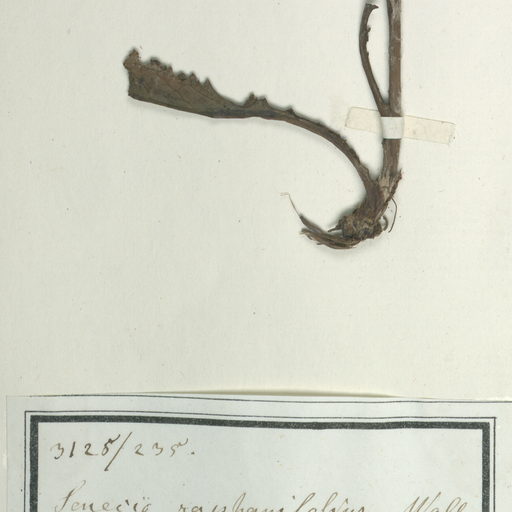 3125/235.
Senecio raphanifolius Wall